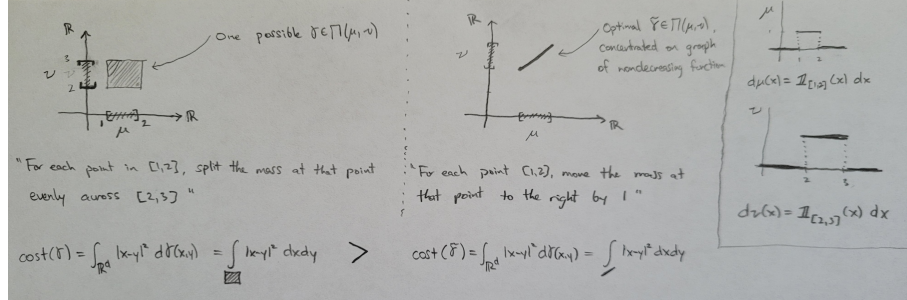 ℝ
3
ν
2
1
2
μ
ℝ
One possible γ∈Π(μ,ν)
"For each point in [1,2], split the mass at that point
evenly across [2,3] "
cost(γ) = ∫_ℝᵈ |x-y|² dγ(x,y) = ∫ |x-y|² dxdy
>
ℝ
ν
μ
ℝ
Optimal γ̃∈Π(μ,ν),
concentrated on graph
of nondecreasing function
"For each point [1,2], move the mass at
that point to the right by 1 "
cost(γ̃) = ∫_ℝᵈ |x-y|² dγ(x,y) = ∫ |x-y|² dxdy
μ
1 2
dμ(x) = 𝟙_[1,2](x) dx
ν
2 3
dν(x) = 𝟙_[2,3](x) dx